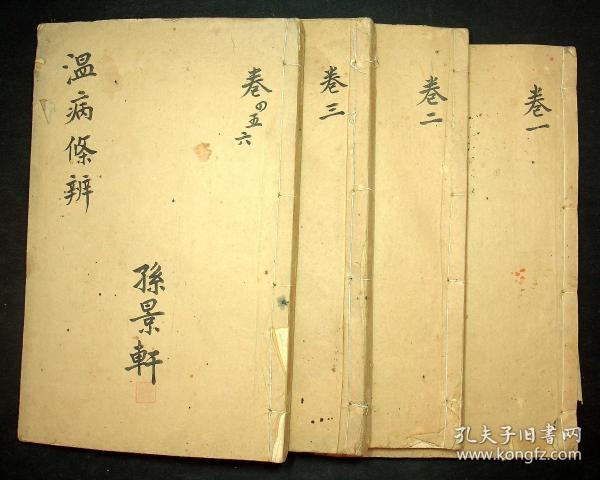 温病條辨
卷四五六
孫景軒
卷三
卷二
卷一
孔夫子旧書网
www.kongfz.com